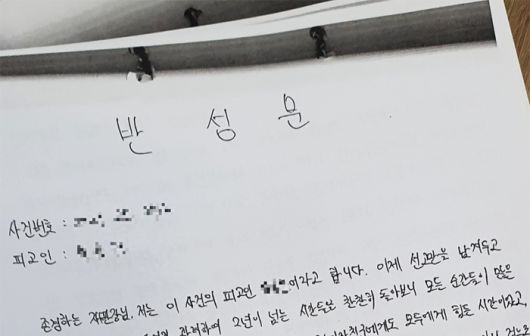 반 성 문
사건번호 :
피고인 :
존경하는 재판장님, 저는 이 사건의 피고인 이라고 합니다. 이제 선고만을 남겨두고
2년이 넘는 시간들을 찬찬히 돌아보니 모든 순간들이
모두에게 힘든 시간이었고,